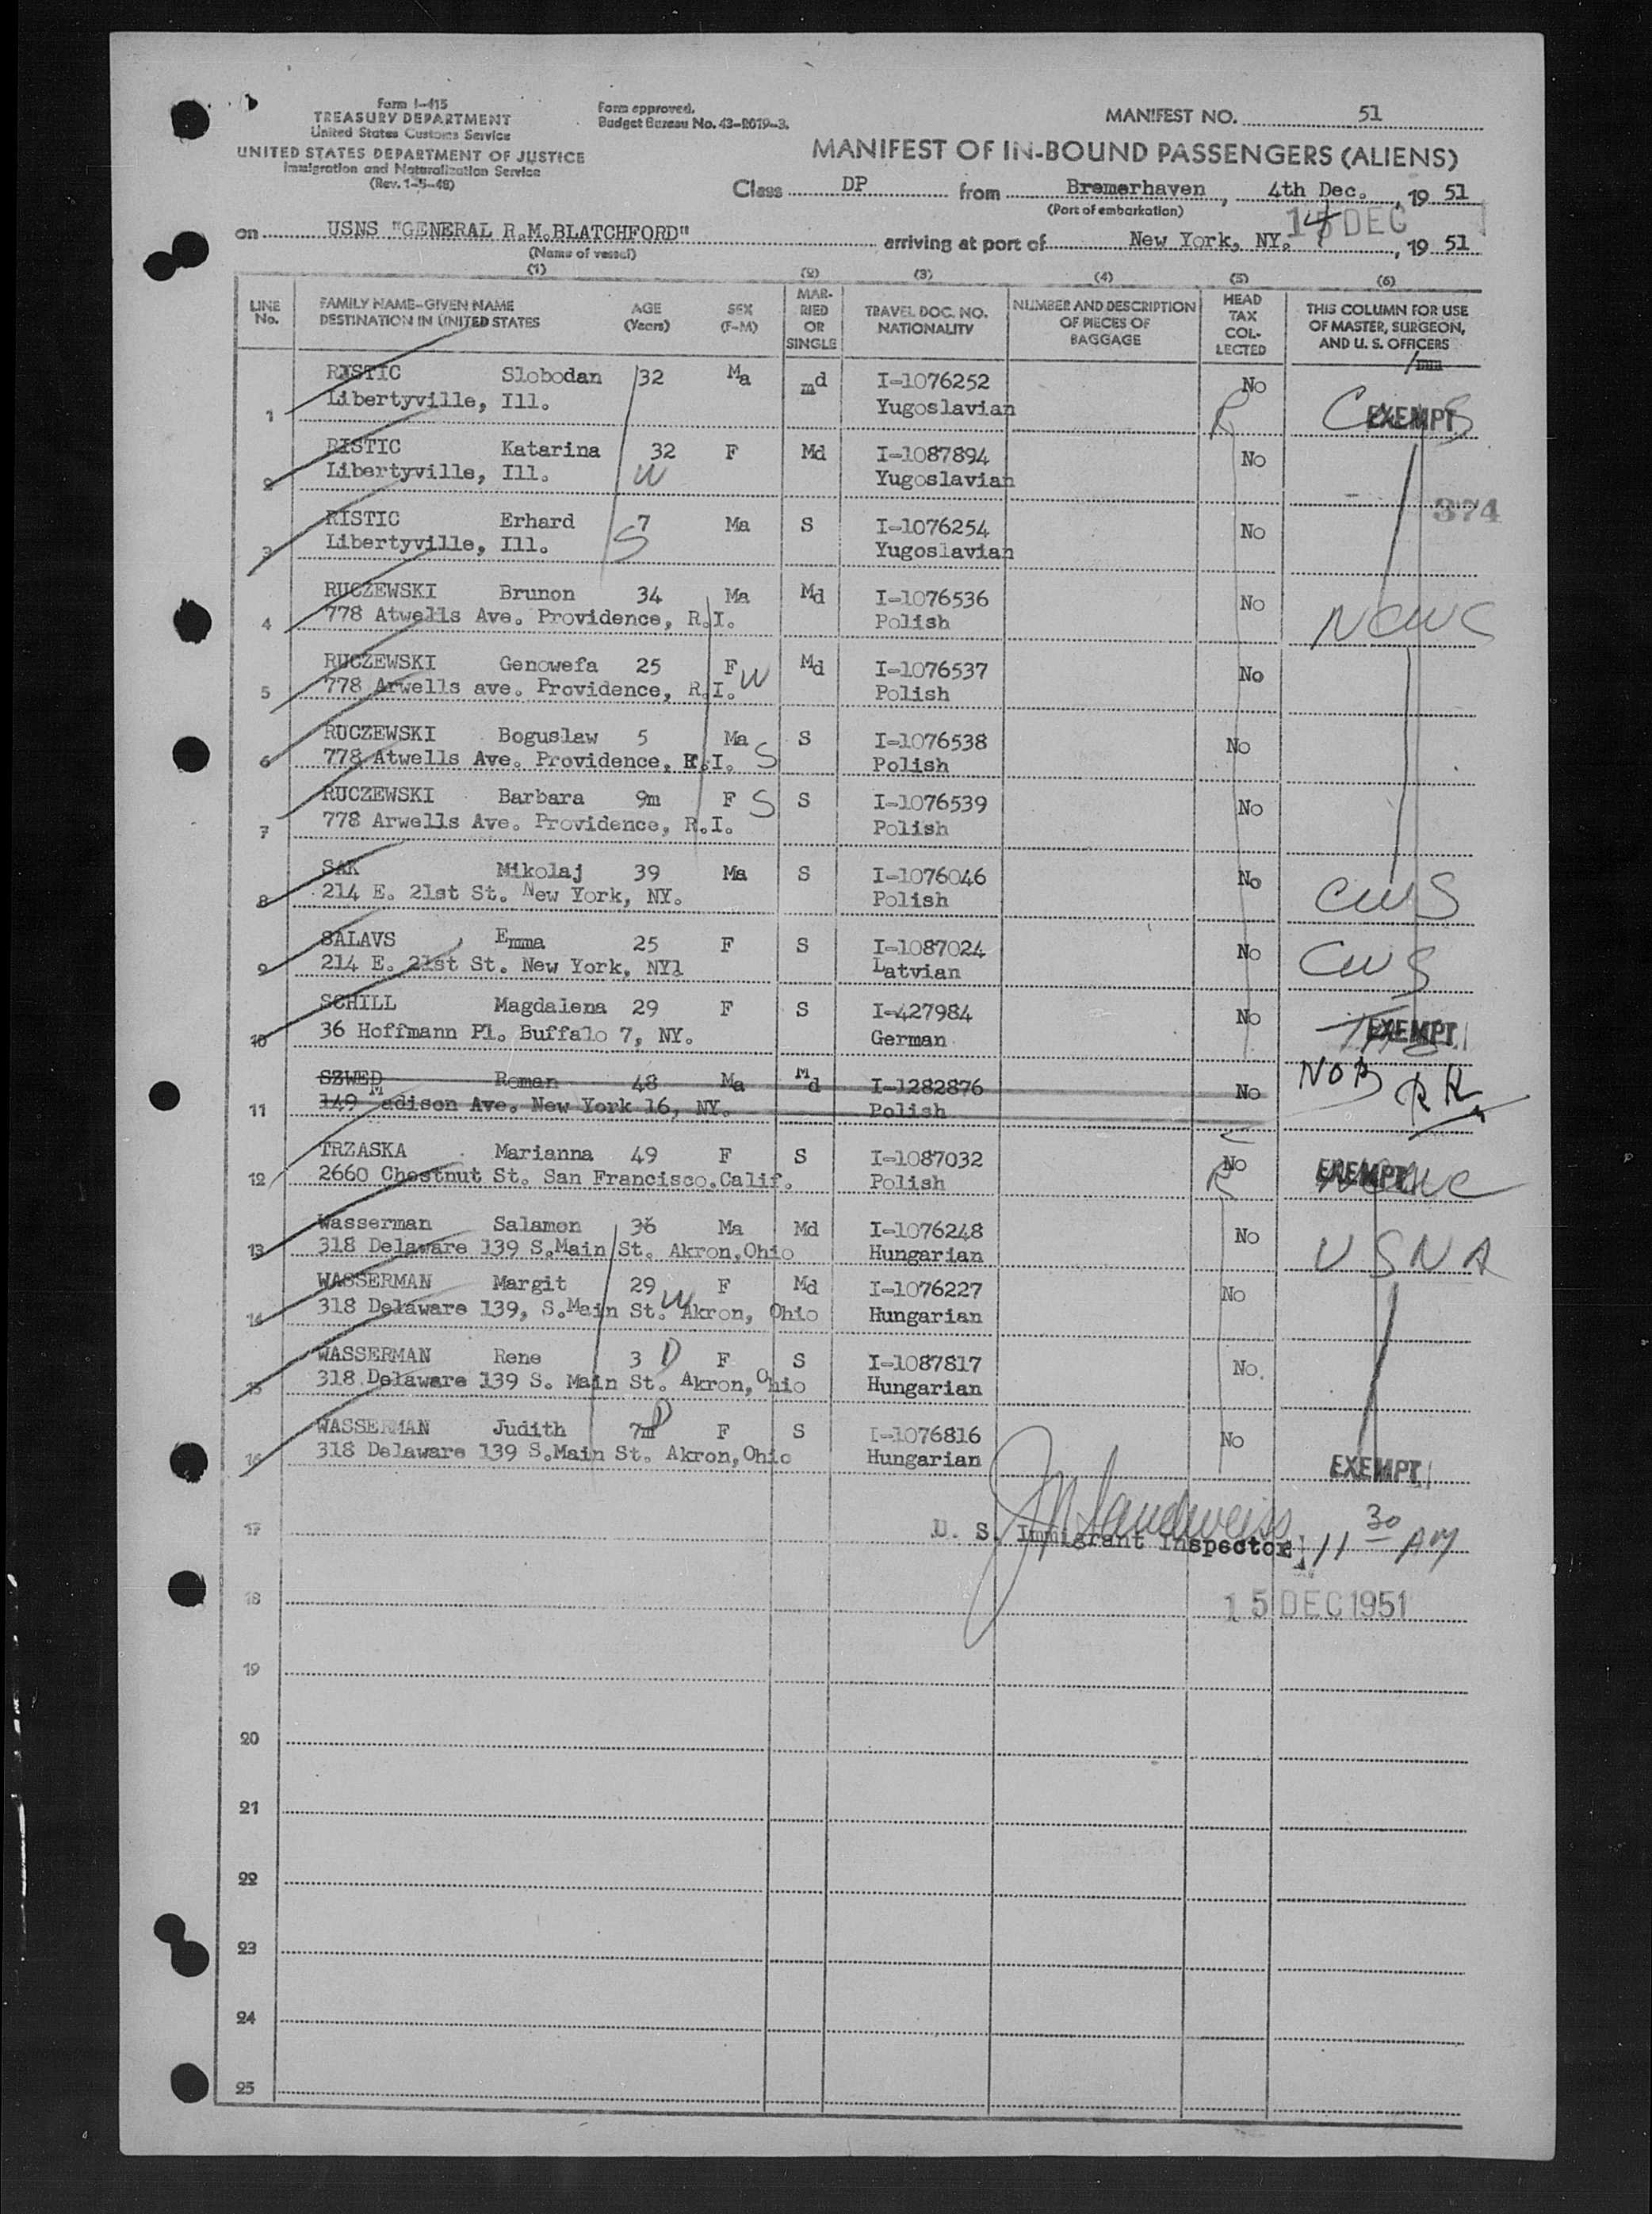 Form I-415
TREASURY DEPARTMENT
United States Customs Service
UNITED STATES DEPARTMENT OF JUSTICE
Immigration and Naturalization Service
(Rev. 1-5-48)
Form approved.
Budget Bureau No. 43-R019-3.
MANIFEST NO. 51
MANIFEST OF IN-BOUND PASSENGERS (ALIENS)
Class DP from Bremerhaven, 4th Dec., 19 51
(Port of embarkation)
on USNS "GENERAL R.M.BLATCHFORD" arriving at port of New York, NY. 14 DEC, 19 51
(Name of vessel)
(1) (2) (3) (4) (5) (6)
LINE No. FAMILY NAME-GIVEN NAME DESTINATION IN UNITED STATES AGE (Years) SEX (F-M) MARRIED OR SINGLE TRAVEL DOC. NO. NATIONALITY NUMBER AND DESCRIPTION OF PIECES OF BAGGAGE HEAD TAX COLLECTED THIS COLUMN FOR USE OF MASTER, SURGEON, AND U. S. OFFICERS
RISTIC Slobodan 32 Ma md I-1076252 No
1 Libertyville, Ill. Yugoslavian R EXEMPT
RISTIC Katarina 32 F Md I-1087894 No
2 Libertyville, Ill. W Yugoslavian
374
RISTIC Erhard 7 Ma S I-1076254 No
3 Libertyville, Ill. S Yugoslavian
RUCZEWSKI Brunon 34 Ma Md I-1076536 No
4 778 Atwells Ave. Providence, R.I. Polish NCWC
RUCZEWSKI Genowefa 25 F W Md I-1076537 No
5 778 Arwells ave. Providence, R.I. Polish
RUCZEWSKI Boguslaw 5 Ma S I-1076538 No
6 778 Atwells Ave. Providence, R.I. S Polish
RUCZEWSKI Barbara 9m F S S I-1076539 No
7 778 Arwells Ave. Providence, R.I. Polish
SAK Mikolaj 39 Ma S I-1076046 No
8 214 E. 21st St. New York, NY. Polish CWS
SALAVS Emma 25 F S I-1087024 No
9 214 E. 21st St. New York, NYl Latvian CWS
SCHILL Magdalena 29 F S I-427984 No
10 36 Hoffmann Pl. Buffalo 7, NY. German EXEMPT
SZWED Roman 48 Ma Md I-1282876 No NOB
11 149 Madison Ave. New York 16, NY. Polish RR
TRZASKA Marianna 49 F S I-1087032 No
12 2660 Chestnut St. San Francisco.Calif. Polish R EXEMPT
Wasserman Salamon 36 Ma Md I-1076248 No
13 318 Delaware 139 S.Main St. Akron,Ohio Hungarian USNA
WASSERMAN Margit 29 F Md I-1076227 No
14 318 Delaware 139, S.Main St. W Akron, Ohio Hungarian
WASSERMAN Rene 3 D F S I-1087817 No.
15 318 Delaware 139 S. Main St. Akron,Ohio Hungarian
WASSERMAN Judith 7m D F S I-1076816 No
16 318 Delaware 139 S.Main St. Akron,Ohio Hungarian EXEMPT
17 U. S. Immigrant Inspector 11 30 AM
18 15 DEC 1951
19
20
21
22
23
24
25